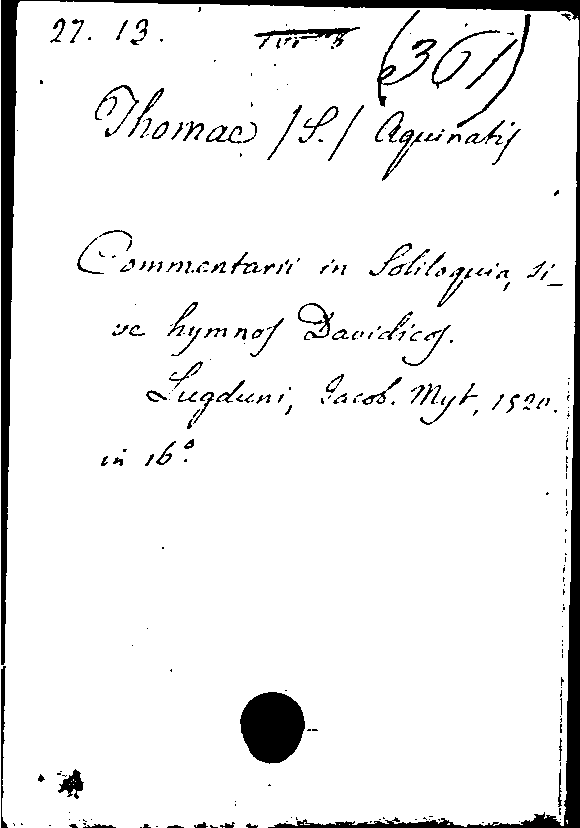 27. 13. (361)
Thomae /S./ Aquinatis
Commentarii in Soliloquia, si-
ve hymnos Davidicos.
Lugduni, Jacob. Myt, 1520.
in 16°.